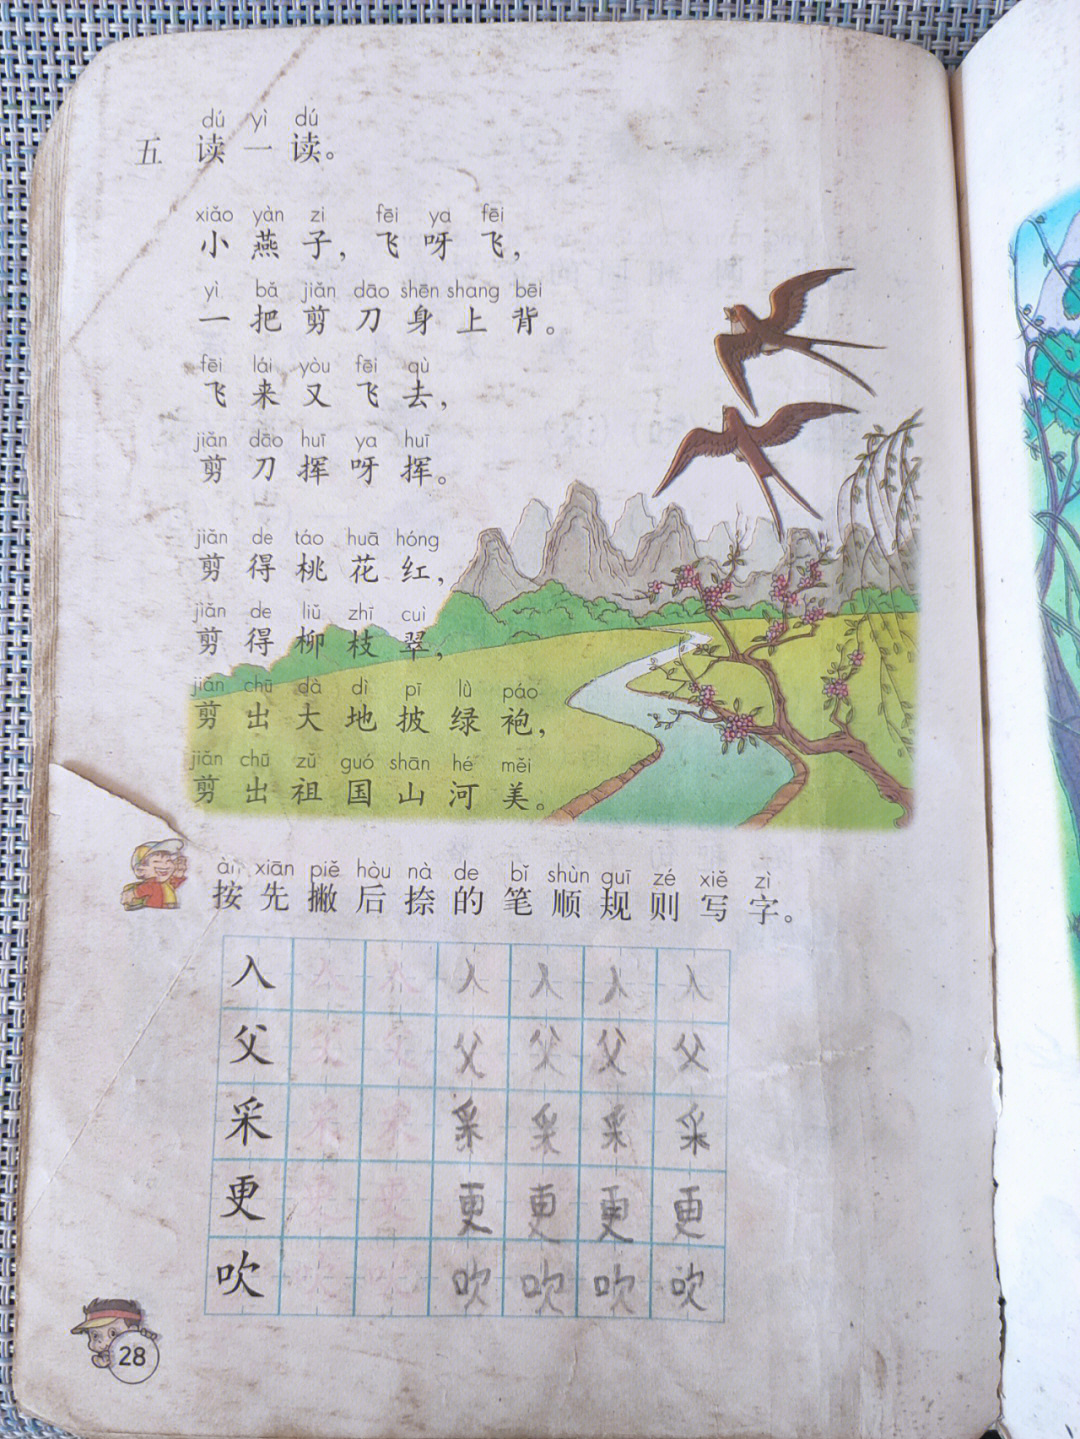 dú yì dú
五 读一读。
xiǎo yàn zi fēi ya fēi
小燕子，飞呀飞，
yì bǎ jiǎn dāo shēn shang bēi
一把剪刀身上背。
fēi lái yòu fēi qù
飞来又飞去，
jiǎn dāo huī ya huī
剪刀挥呀挥。
jiǎn de táo huā hóng
剪得桃花红，
jiǎn de liǔ zhī cuì
剪得柳枝翠，
jiǎn chū dà dì pī lǜ páo
剪出大地披绿袍，
jiǎn chū zǔ guó shān hé měi
剪出祖国山河美。
àn xiān piě hòu nà de bǐ shùn guī zé xiě zì
按先撇后捺的笔顺规则写字。
入 入 入 入 入 入 入
父 父 父 父 父 父 父
采 采 采 采 采 采 采
更 更 更 更 更 更 更
吹 吹 吹 吹 吹 吹 吹
28